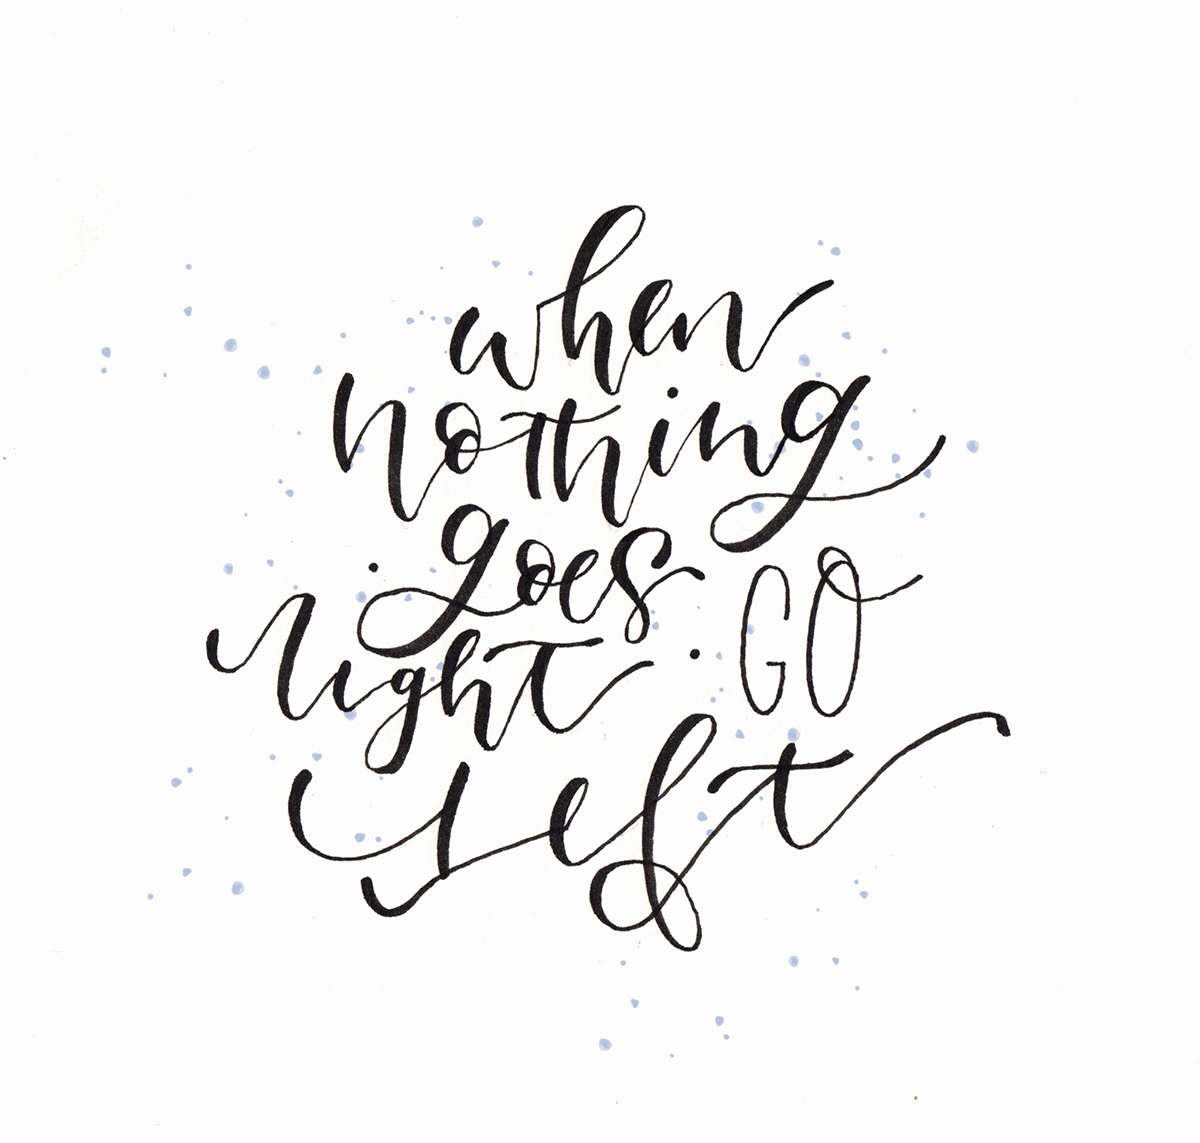 when
nothing
goes
right. GO
left